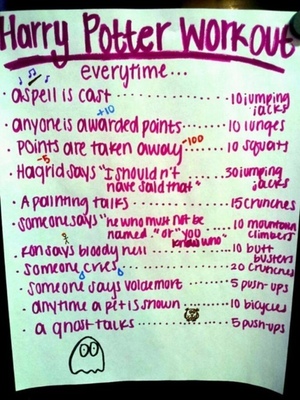 Harry Potter Workout
everytime...
• a spell is cast ........ 10 jumping jacks
+10
• anyone is awarded points ..... 10 lunges
• points are taken away -100 ..... 10 squats
-5
• Hagrid says "I shouldn't have said that" ..... 30 jumping jacks
• A painting talks ........ 15 crunches
• someone says "he who must not be named" or "you know who" ..... 10 mountain climbers
• Ron says bloody hell ........ 10 butt busters
• someone cries ........ 20 crunches
• someone says voldemort ..... 5 push-ups
• anytime a pet is shown ..... 10 bicycles
• a ghost talks ........ 5 push-ups